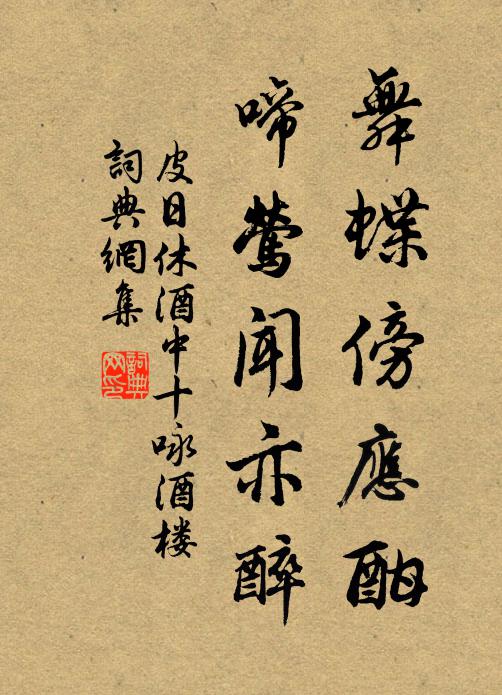 舞蝶傍應酣
啼鶯聞亦醉
皮日休酒中十咏酒楼
詞典網集
詞典网印